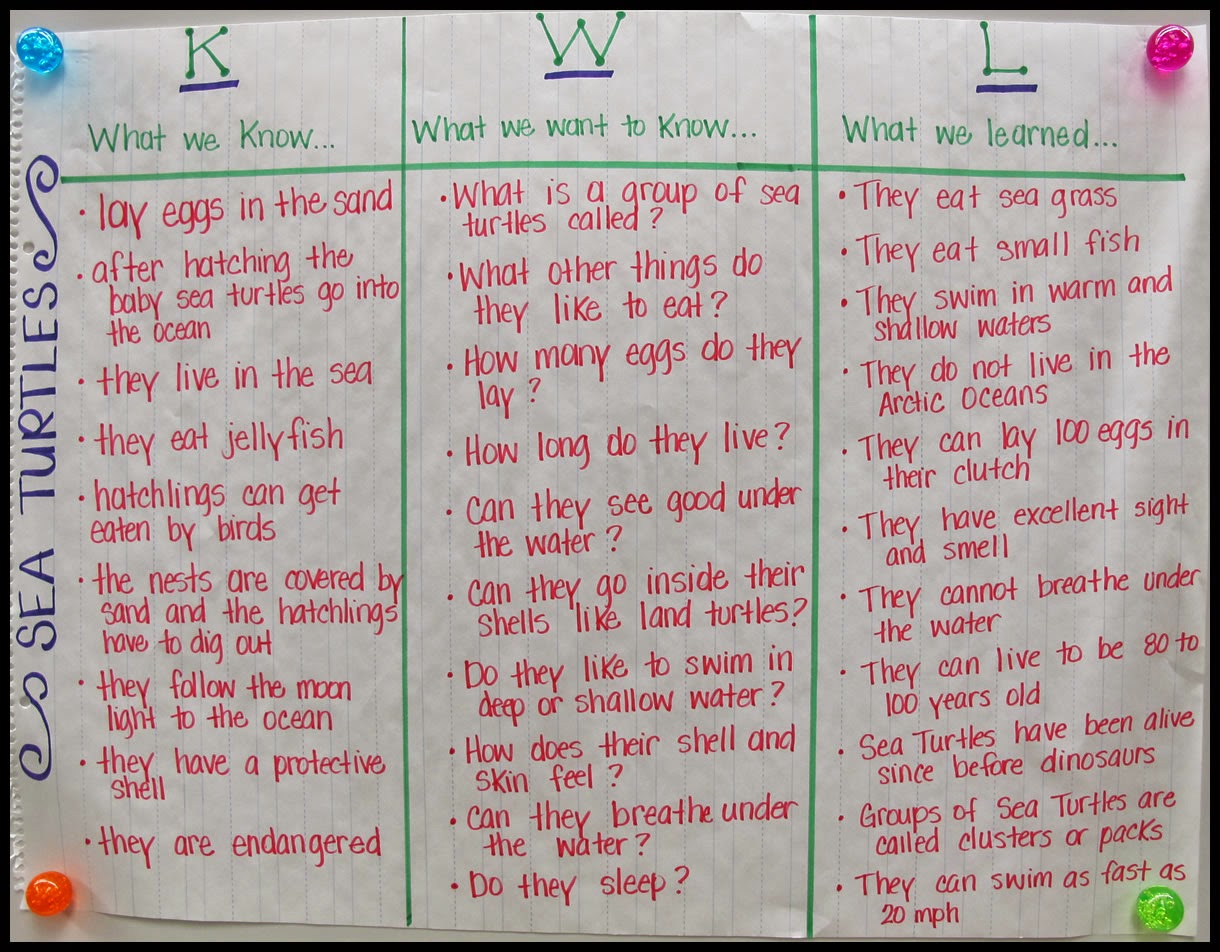 SEA TURTLES
K
What we Know...
• lay eggs in the sand
• after hatching the
baby sea turtles go into
the ocean
• they live in the sea
• they eat jellyfish
• hatchlings can get
eaten by birds
• the nests are covered by
sand and the hatchlings
have to dig out
• they follow the moon
light to the ocean
• they have a protective
shell
• they are endangered
W
What we want to Know...
• What is a group of sea
turtles called?
• What other things do
they like to eat?
• How many eggs do they
lay?
• How long do they live?
• Can they see good under
the water?
• Can they go inside their
shells like land turtles?
• Do they like to swim in
deep or shallow water?
• How does their shell and
skin feel?
• Can they breathe under
the water?
• Do they sleep?
L
What we learned...
• They eat sea grass
• They eat small fish
• They swim in warm and
shallow waters
• They do not live in the
Arctic Oceans
• They can lay 100 eggs in
their clutch
• They have excellent sight
and smell
• They cannot breathe under
the water
• They can live to be 80 to
100 years old
• Sea Turtles have been alive
since before dinosaurs
• Groups of Sea Turtles are
called clusters or packs
• They can swim as fast as
20 mph